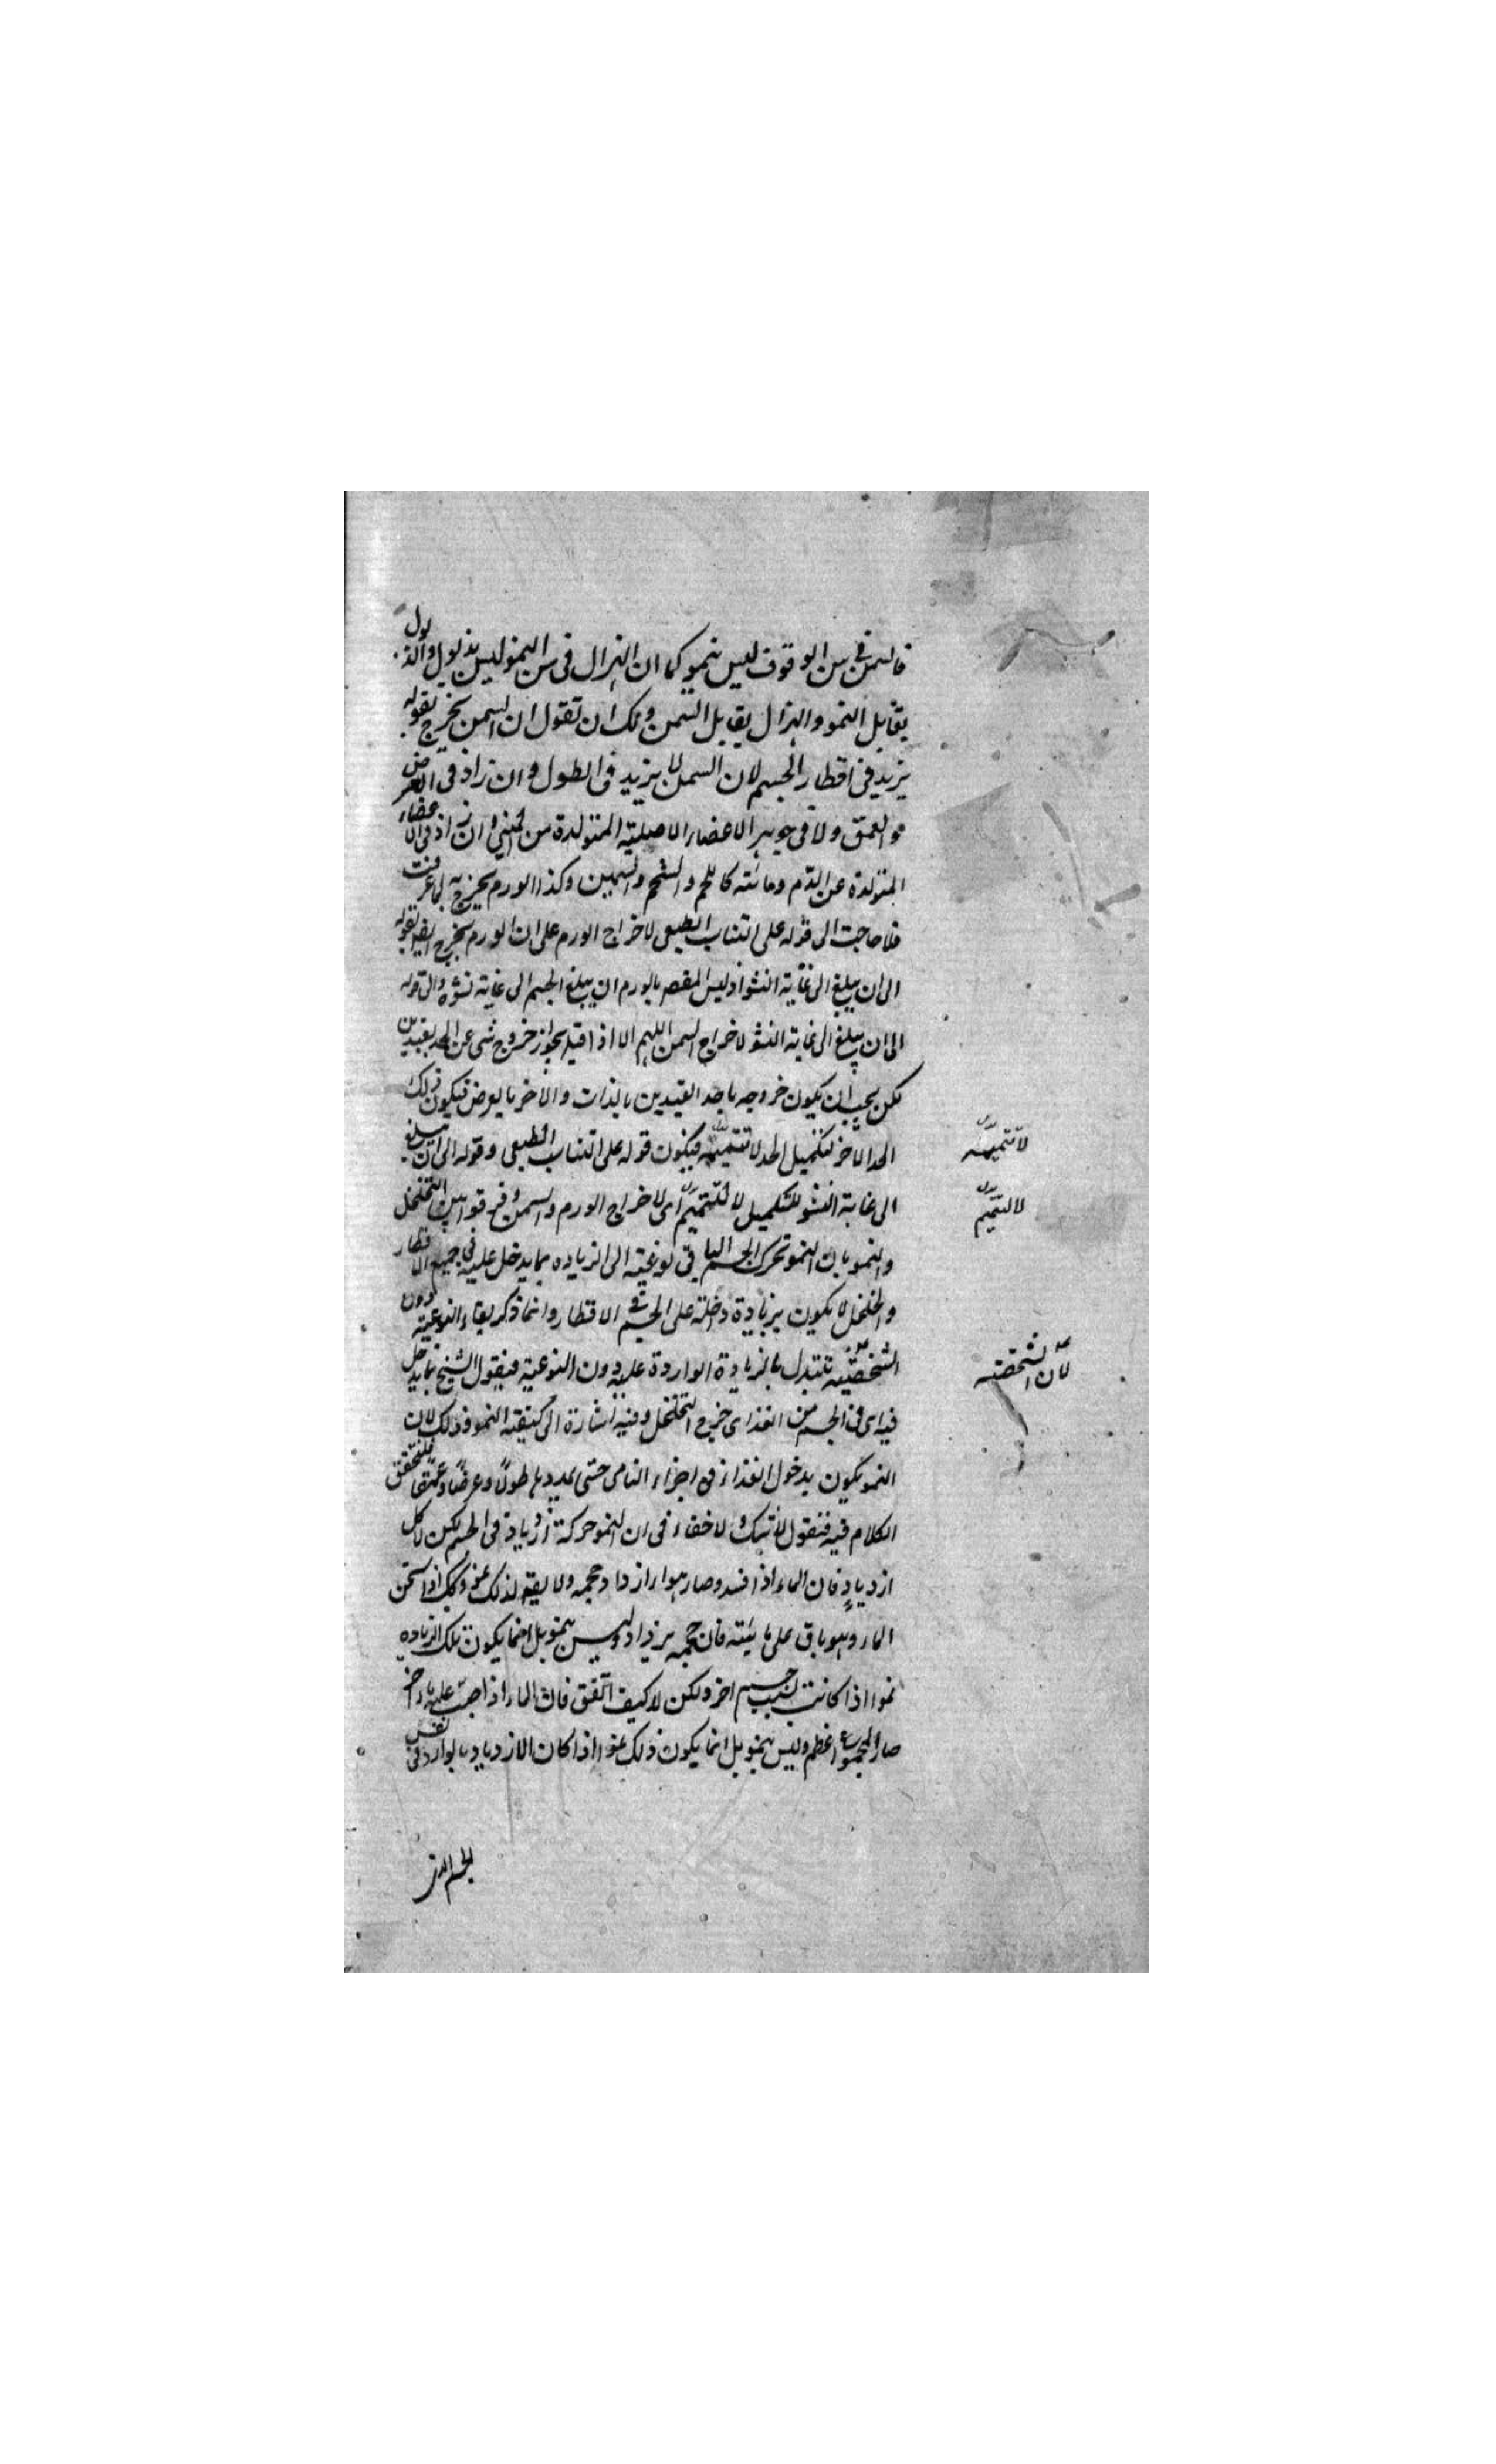 فالسمن فى سن الوقوف ليس بنمو كما ان الهزال فى سن النمو ليس بذبول والذبول
يقابل النمو والهزال يقابل السمن ولك ان تقول ان السمن يخرج بقوله
يزيد فى اقطار الجسم لان السمن لا يزيد فى الطول وان زاد فى العرض
والعمق ولا فى جوهر الاعضاء الاصلية المتولدة من المنى وان زاد فى الاعضاء
المتولدة عن الدم ومائته كاللحم والشحم والسمين وكذا الورم يخرج به لما عرفت
فلا حاجت الى قوله على التناسب الطبعى لاخراج الورم على ان الورم يخرج ايضا بقوله
الى ان يبلغ الى غاية النشو اذ ليس المقصد بالورم ان يبلغ الجسم الى غاية نشوه والى قوله
الى ان يبلغ الى غاية النشو لاخراج السمن اللهم الا اذا قيل يجوز خروج شى عن الحد بقيدين
لكن يجب ان يكون خروجه باحد القيدين بالذات والآخر بالعرض فيكون ذلك
الحد الآخر لتكميل الحد لا تتميمه فيكون قوله على التناسب الطبعى وقوله الى ان يبلغ
الى غاية النشو للتكميل لا للتتميم اى لا خراج الورم والسمن وفرقوا بين التخلخل
والنمو بان النمو تحرك الجسم الباقى نوعيته الى الزياده بما يدخل عليه فى جميع الاقطار
والتخلخل لا يكون بزيادة داخلة على الجسم فى الاقطار وانما ذكر بقاء النوعية دون
الشخصية تتبدل بالزيادة الواردة عليه دون النوعية فبقول الشيخ بما يدخل
فيه اى فى الجسم من الغذاء خرج التخلخل وفيه اشارة الى كيفية النمو وذلك لان
النمو يكون بدخول الغذاء فى اجزاء النامى حتى يمددها طولًا وعرضًا وعمقًا فلنحقق
الكلام فيه فنقول لا شك ولا خفاء فى ان النمو حركة ازدياد فى الجسم لكن لا كل
ازديادٍ فان الماء اذا فسد وصار هواء ازداد حجمه ولا يقال لذلك نمو وكذلك اذا سخن
الماء وهو باق على مائيته فان حجمه يزداد وليس بنمو بل انما يكون تلك الزياده
نموا اذا كانت بسبب جسم اخر ولكن لا كيف اتفق فان الماء اذا صب عليه ماء اخر
صار المجموع اعظم وليس بنمو بل انما يكون ذلك نموا اذا كان الازدياد بالوارد فى نفس
لا تتميمه
لا للتتميم
لان الشخصية